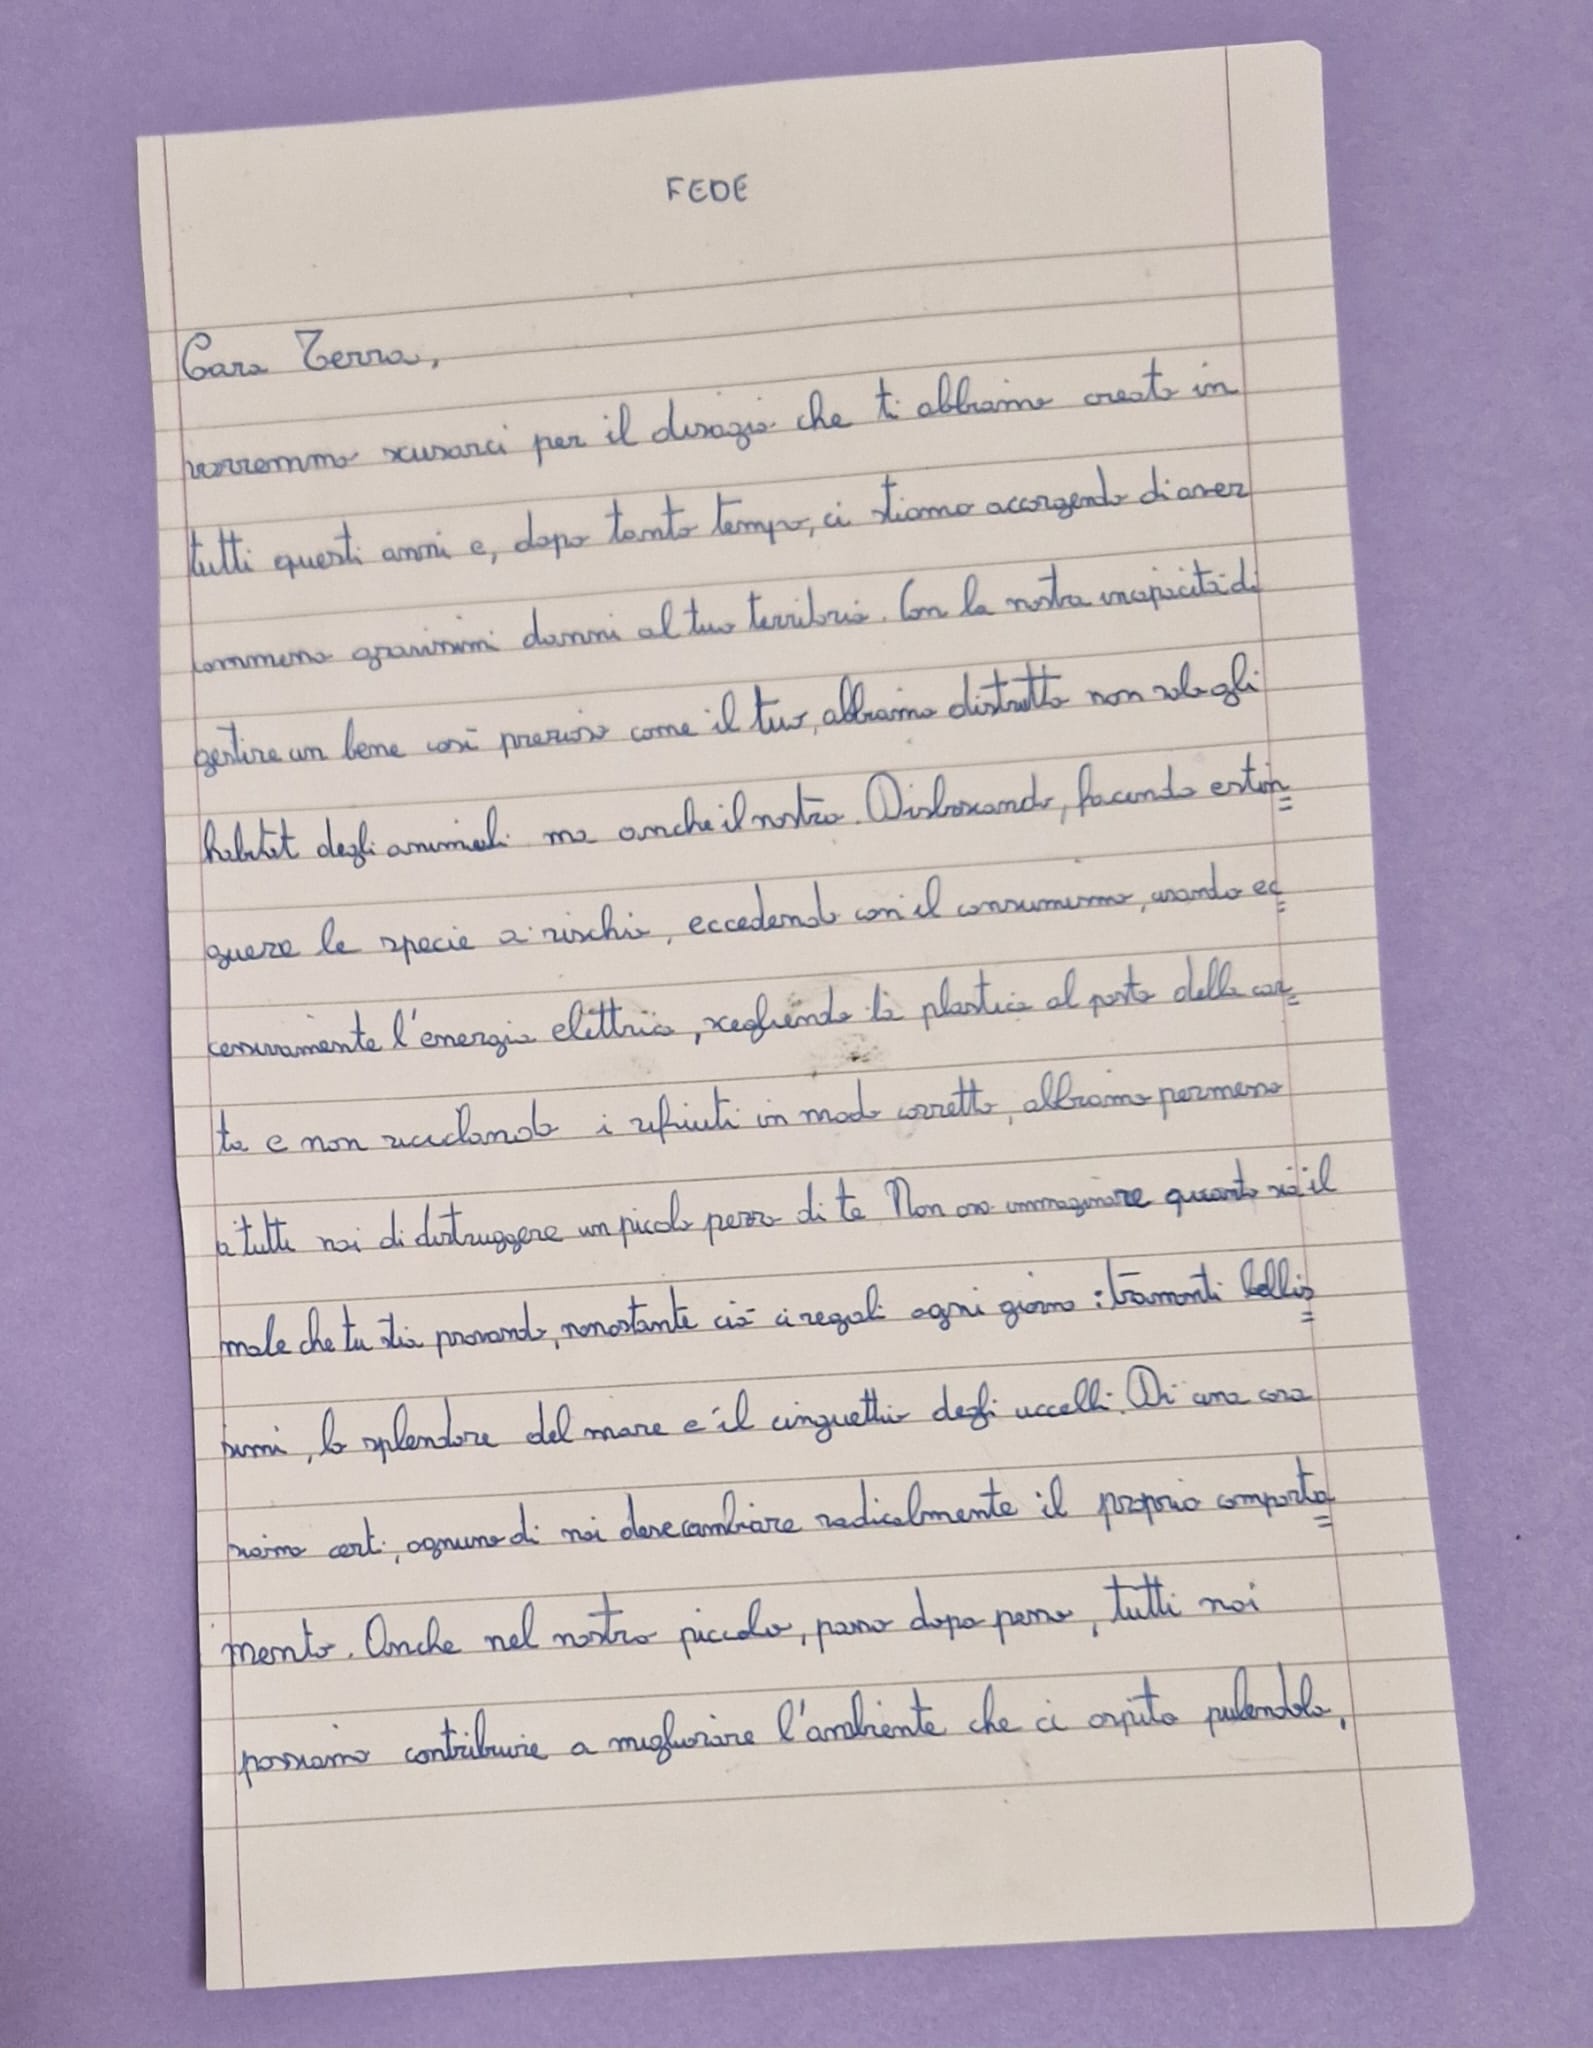 FEDE
Cara Terra,
vorremmo scusarci per il disagio che ti abbiamo creato in
tutti questi anni e, dopo tanto tempo, ci stiamo accorgendo di aver
commesso gravissimi danni al tuo territorio. Con la nostra incapacità di
gestire un bene così prezioso come il tuo, abbiamo distrutto non solo gli
habitat degli animali ma anche il nostro. Disboscando, facendo estin=
guere le specie a rischio, eccedendo con il consumismo, usando ec=
cessivamente l'energia elettrica, scegliendo la plastica al posto della car=
ta e non riciclando i rifiuti in modo corretto, abbiamo permesso
a tutti noi di distruggere un piccolo pezzo di te Non oso immaginare quanto sia il
male che tu stia provando, nonostante ciò ci regali ogni giorno: tramonti bellis=
simi, lo splendore del mare e il cinguettio degli uccelli. Di una cosa
siamo certi, ognuno di noi deve cambiare radicalmente il proprio comporta=
mento. Anche nel nostro piccolo, passo dopo passo, tutti noi
possiamo contribuire a migliorare l'ambiente che ci ospita pulendolo,